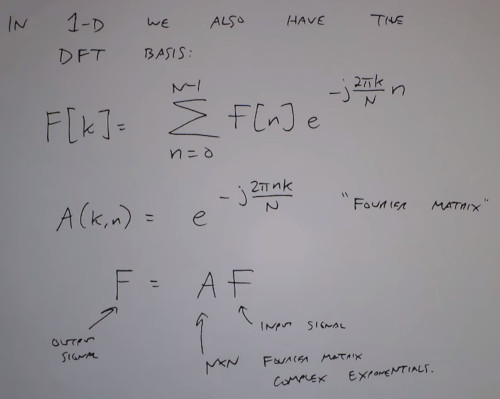 IN 1-D WE ALSO HAVE THE
DFT BASIS:
F[k] = \sum_{n=0}^{N-1} F[n] e^{-j\frac{2πk}{N}n}
A(k,n) = e^{-j\frac{2πnk}{N}} "FOURIER MATRIX"
F = A F
OUTPUT SIGNAL
INPUT SIGNAL
N×N FOURIER MATRIX
COMPLEX EXPONENTIALS.